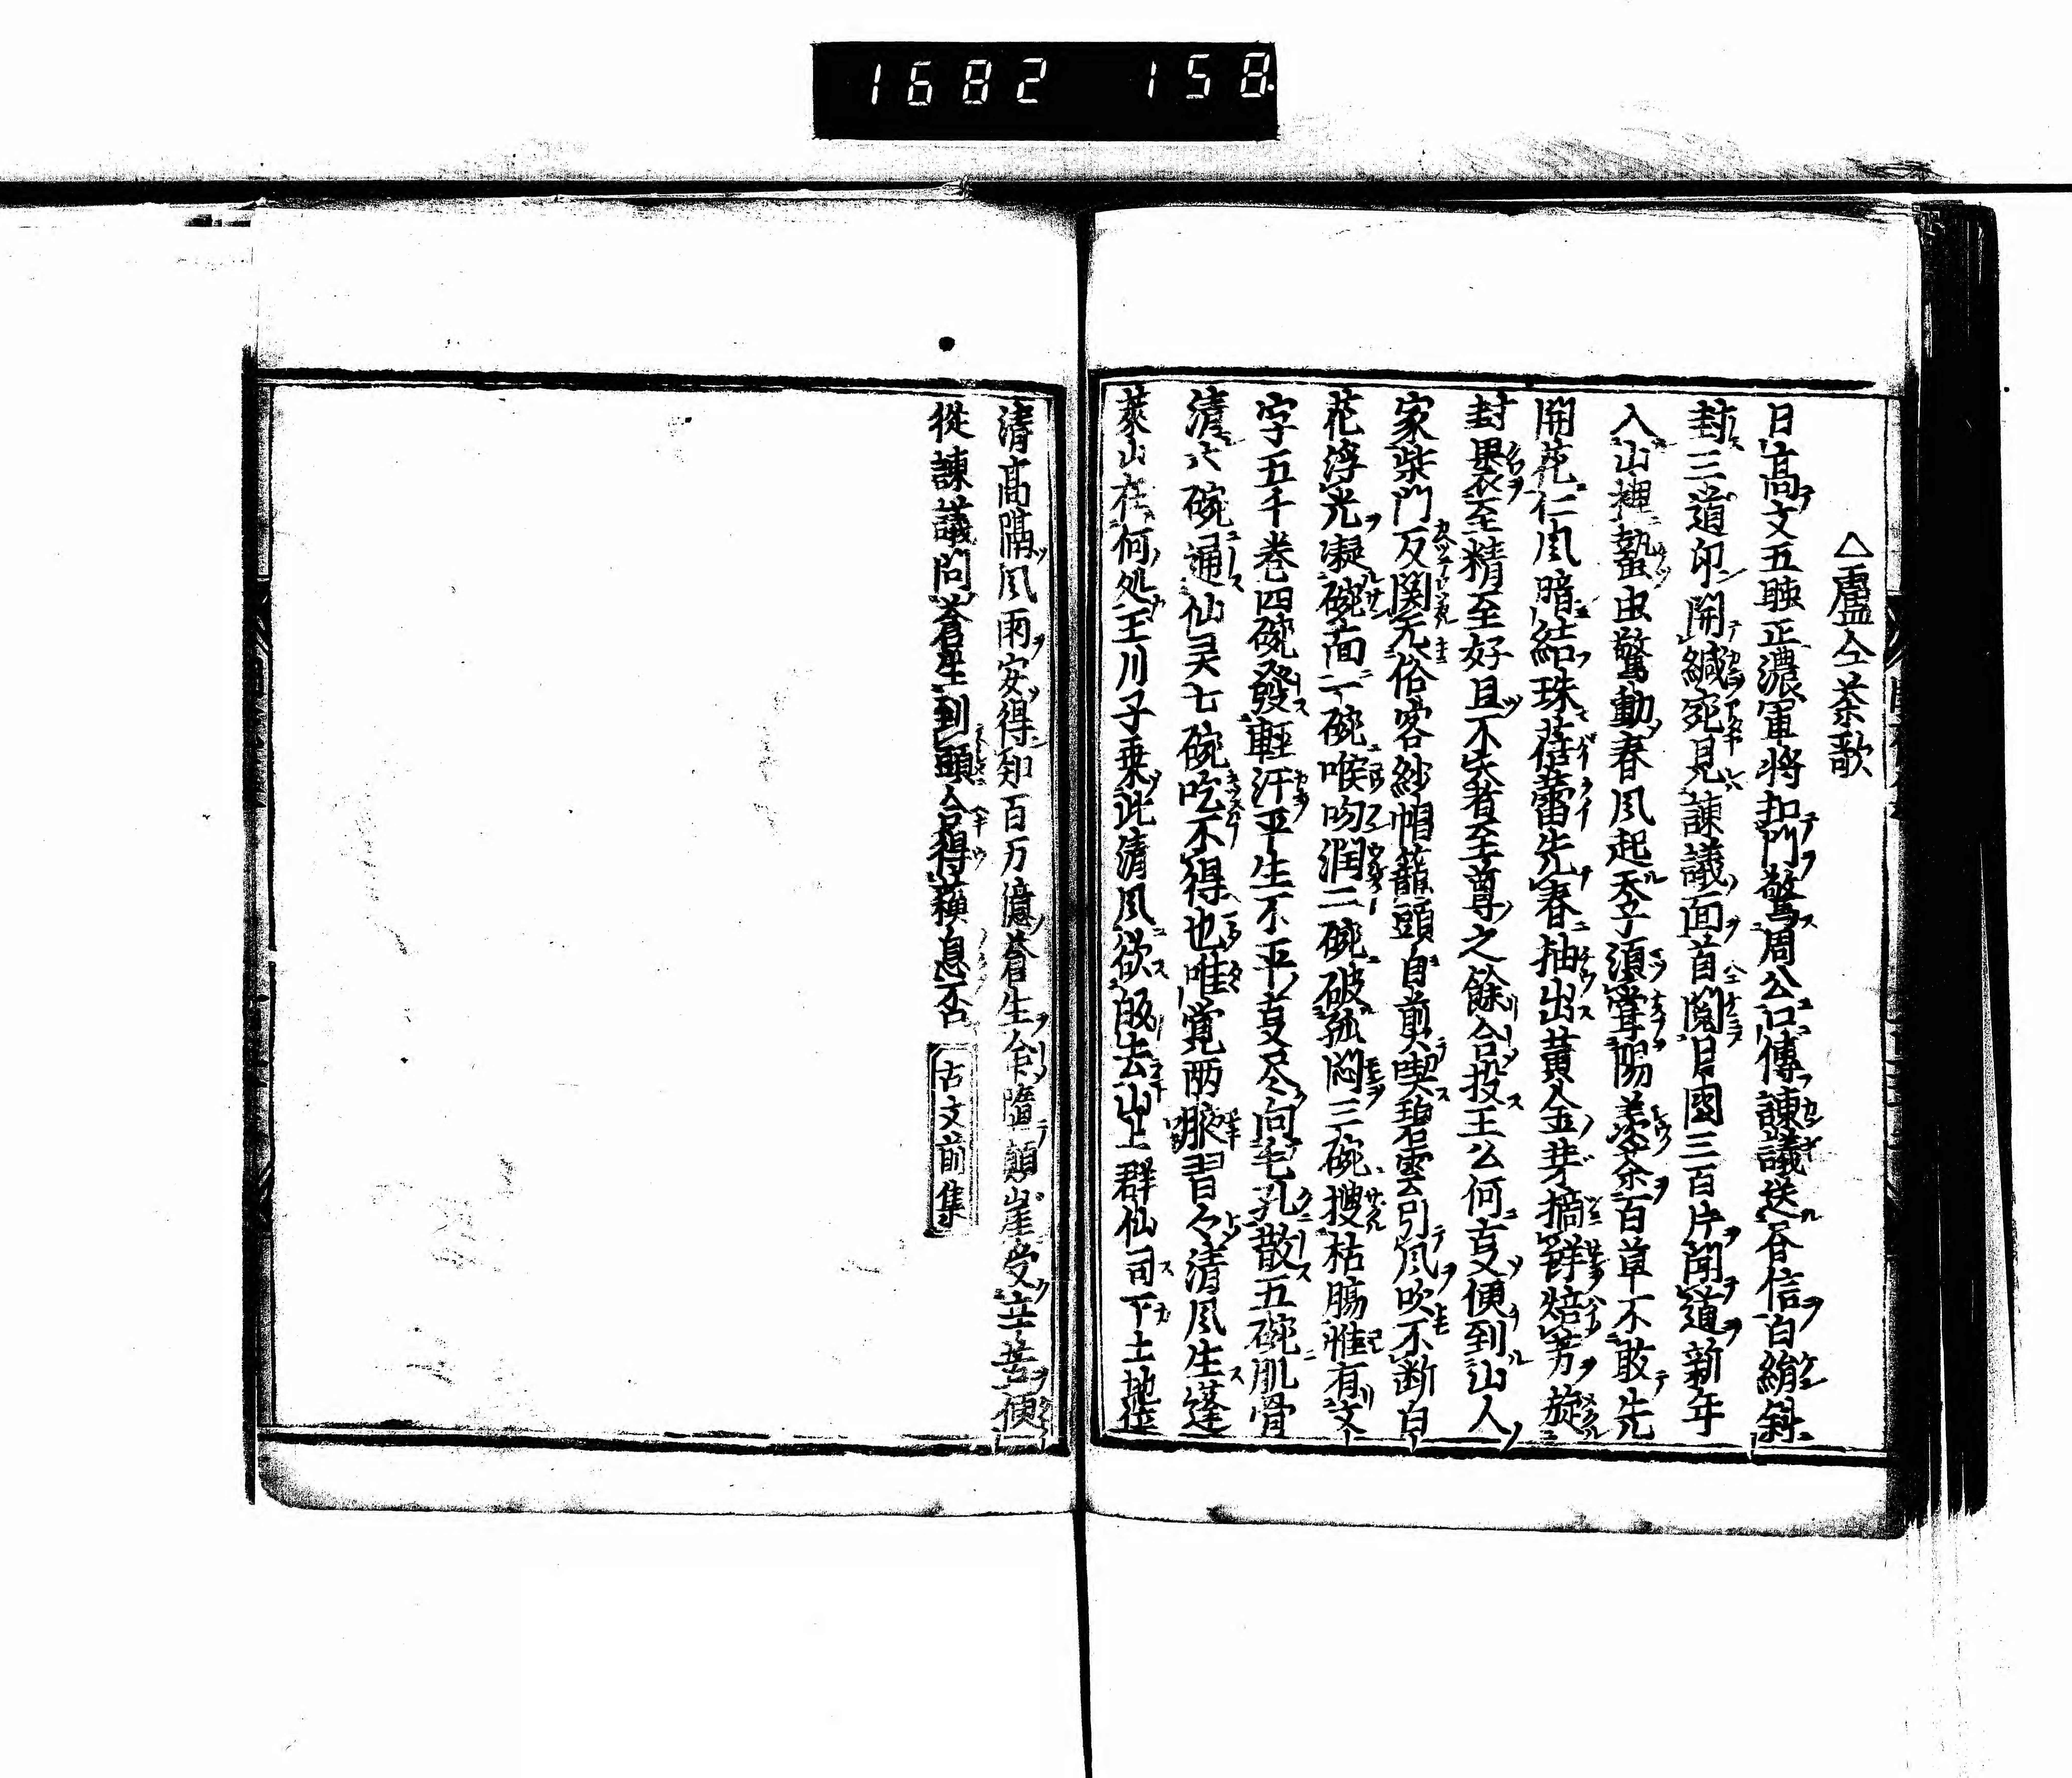 1682 158
△盧仝茶歌
日高丈五睡正濃軍將扣門驚周公口傳諫議送春信白絹斜
封三道印開緘宛見諫議面首閲月團三百片聞道新年
入山裡蟄虫驚動春風起天子須甞陽羨茶百草不敢先
開花仁風暗結珠蓓蕾先春抽出黄金芽摘鮮焙芳旋
封裹至精至好且不失者至尊之餘合投王公何支便到山人
家柴門反関无俗客紗帽籠頭自煎喫碧雲引風吹不断白
花浮光凝碗面一碗喉吻潤二碗破孤悶三碗搜枯腸惟有文
字五千巻四碗發輕汗平生不平支尽向毛孔散五碗肌骨
清六碗通仙灵七碗吃不得也唯覚両腋習々清風生蓬
莱山在何処王川子乗此清風欲皈去山上群仙司下土地位
清高隔風雨安得知百万億蒼生命墮顛崖受辛苦便
従諫議問蒼生到頭合得蘓息否 古文前集